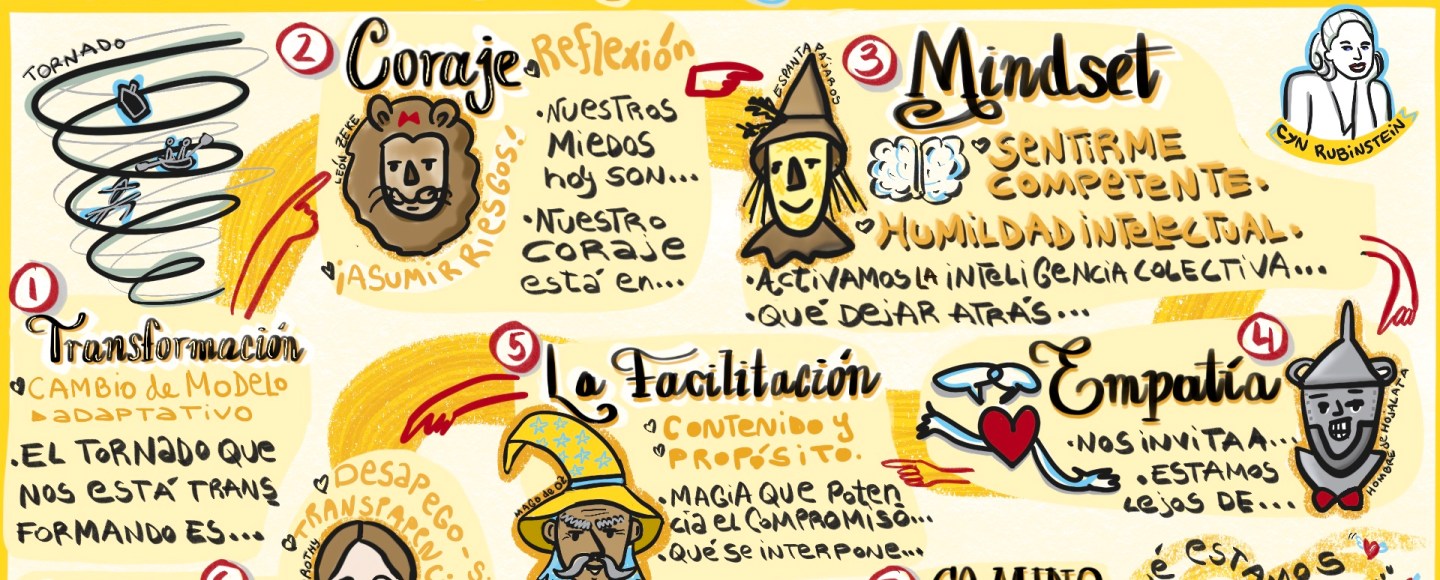 TORNADO
1
Transformación
CAMBIO de MODELO
ADAPTATIVO
.EL TORNADO QUE
NOS ESTÁ TRANS
FORMANDO ES...
2
Coraje
Reflexión
LEÓN ZERE
¡ASUMIR RIESGOS!
•NUESTROS
MIEDOS
hoy SON...
•NUESTRO
CORAJE
está en...
3
Mindset
ESPANTAPÁJAROS
SENTIRME
COMPETENTE.
HUMILDAD INTELECTUAL.
•ACTIVAMOS LA INTELIGENCIA COLECTIVA...
•QUÉ DEJAR ATRÁS...
CYN RUBINSTEIN
4
Empatía
•NOS INVITA A...
•ESTAMOS
LEJOS DE...
HOMBRE de HOJALATA
5
La Facilitación
CONTENIDO Y
PROPÓSITO.
MAGO de OZ
•MAGIA QUE POTEN
CIA EL COMPROMISO...
•QUÉ SE INTERPONE...
DESAPEGO-